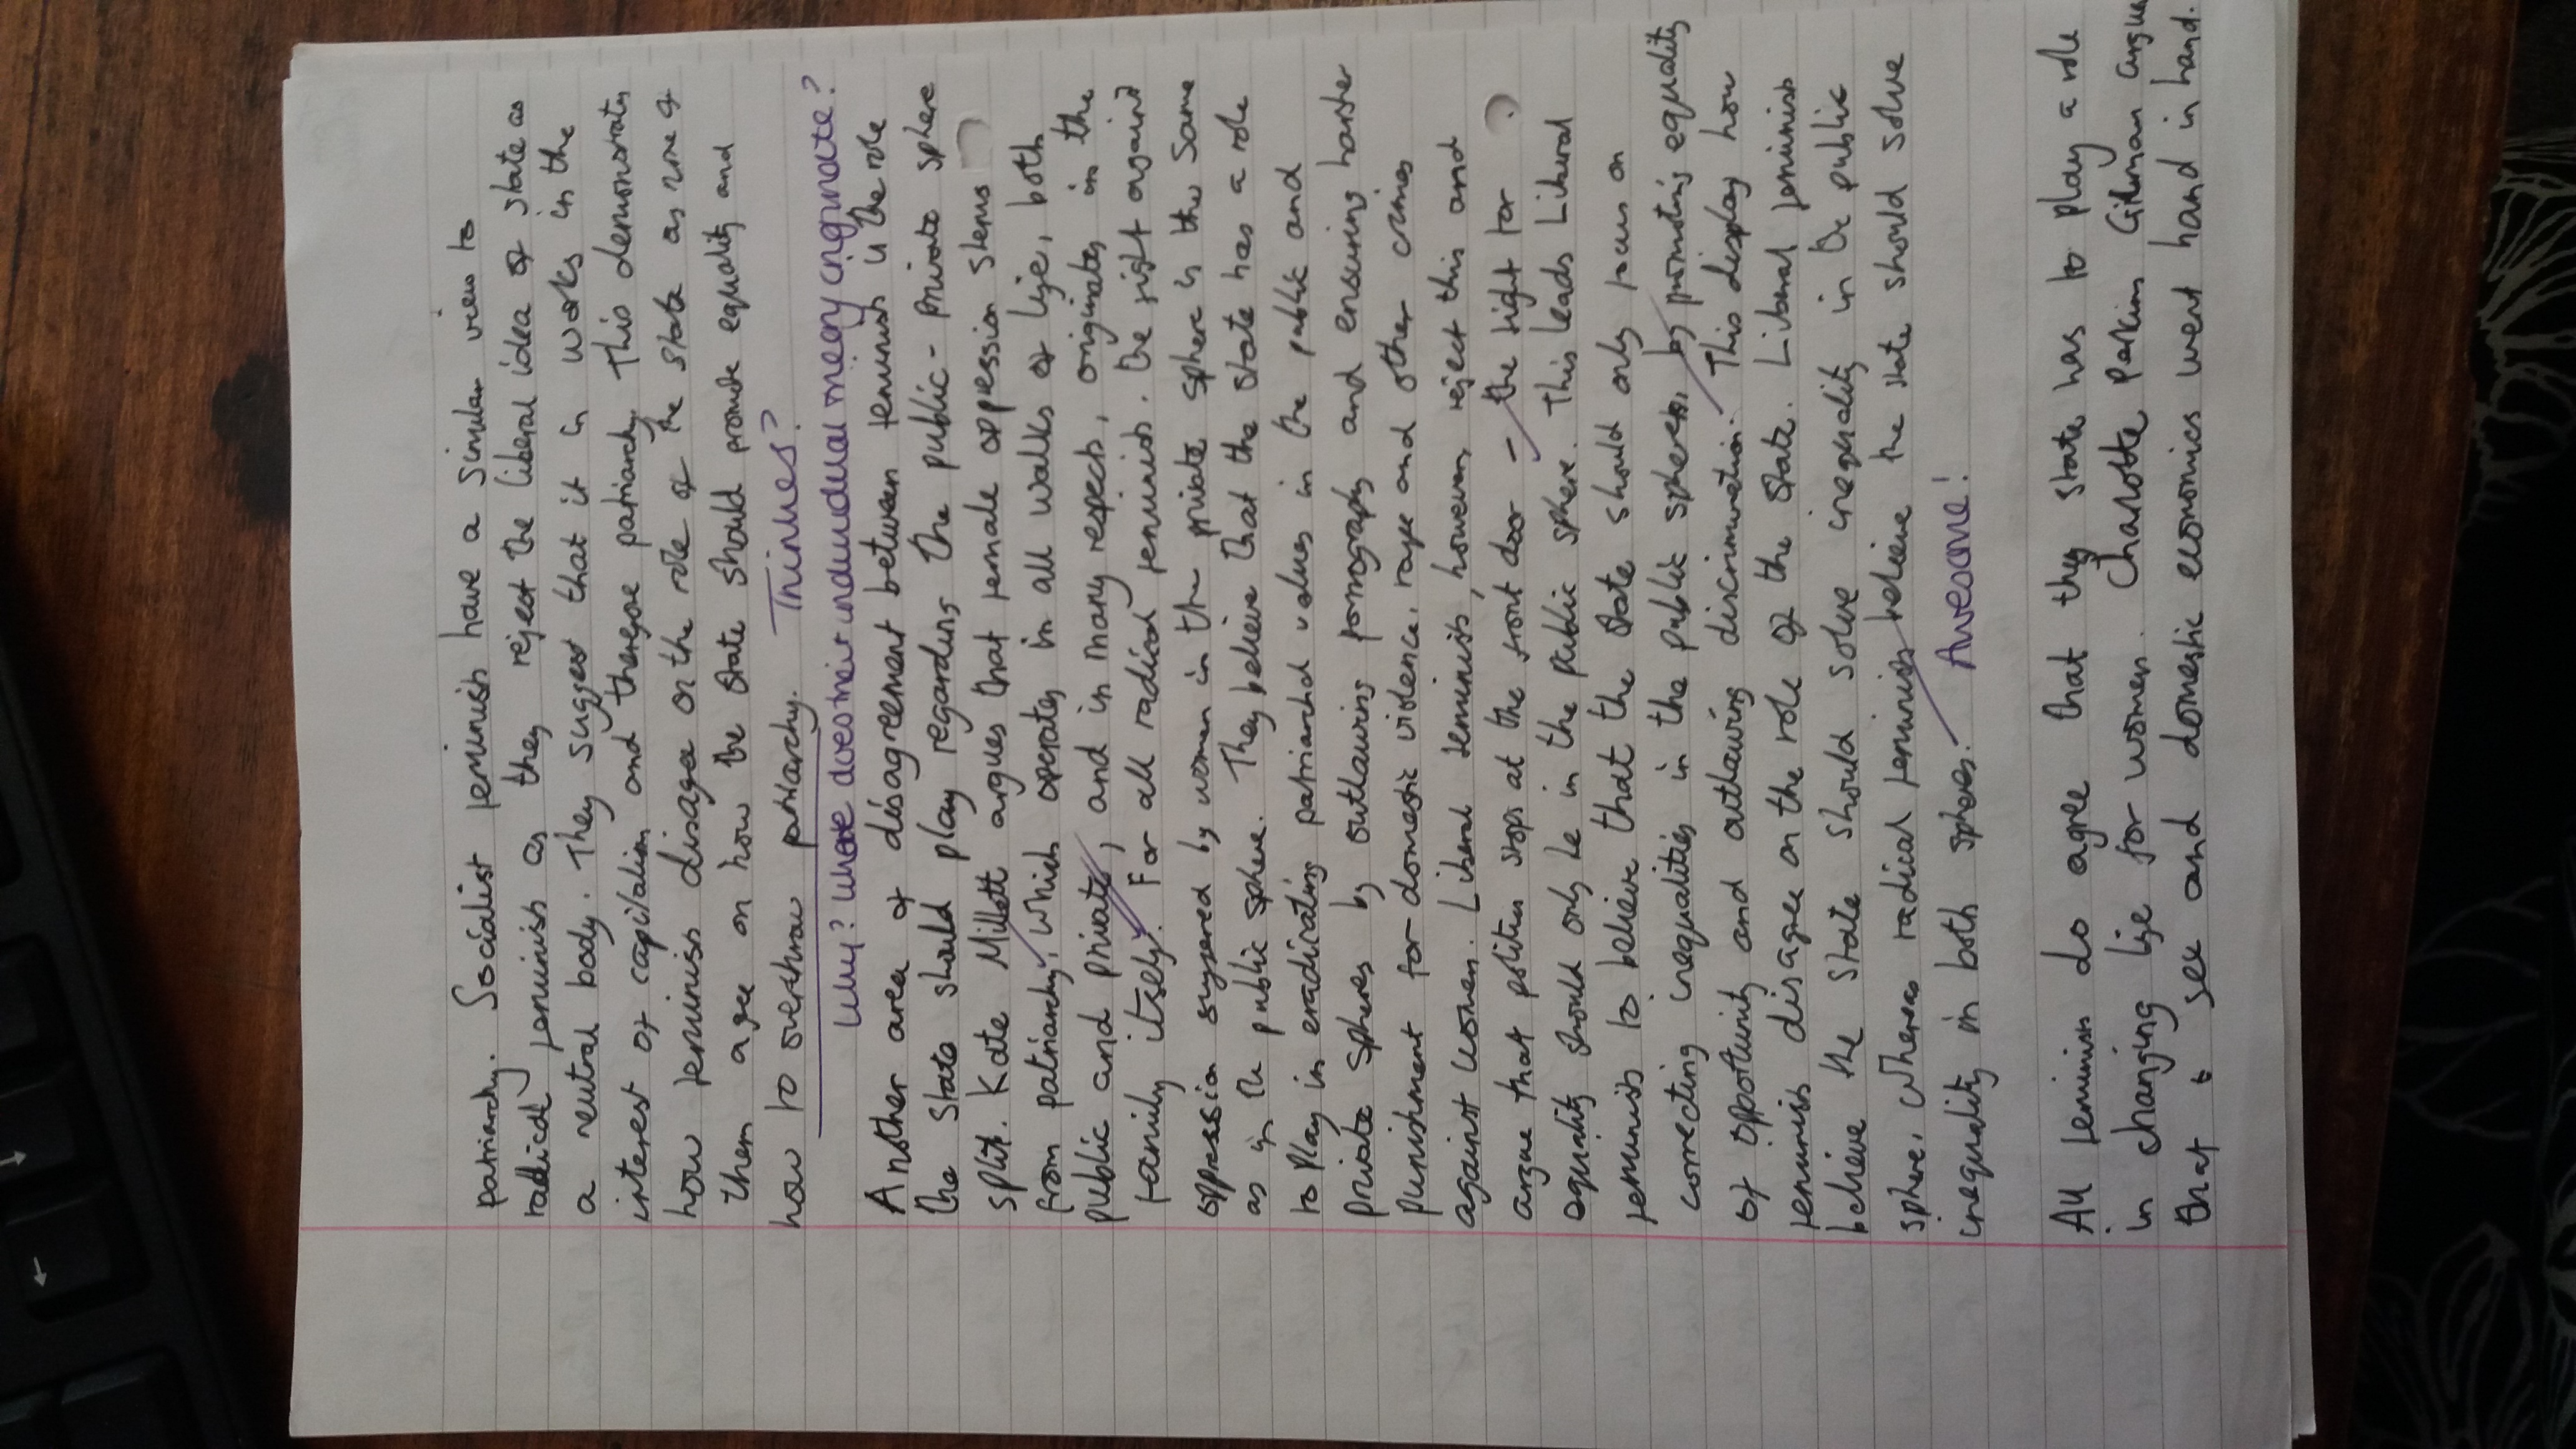 patriarchy. Socialist feminists have a similar view to
radical feminists as they reject the liberal idea of state as
a neutral body. They suggest that it is works in the
interest of capitalism and therefore patriarchy. This demonstrates
how feminists disagree on the role of the state as none of
them agree on how the state should promote equality and
how to overthrow patriarchy. Thinkers?
Why? Where does their individual theory originate?
Another area of disagreement between feminists is the role
the state should play regarding the public - private sphere
split. Kate Millett argues that female oppression stems
from patriarchy, which operates in all walks of life, both
public and private, and in many respects, originates in the
family itself. For all radical feminists, the fight against
oppression suffered by women in the private sphere is the same
as in the public sphere. They believe that the state has a role
to play in eradicating patriarchal values in the public and
private spheres by outlawing pornography and ensuring harsher
punishment for domestic violence, rape and other crimes
against women. Liberal feminists, however, reject this and
argue that politics stops at the front door - the fight for
equality should only be in the public sphere. This leads Liberal
feminists to believe that the state should only focus on
correcting inequalities in the public spheres, by promoting equality
of opportunity and outlawing discrimination. This display how
feminists disagree on the role of the state. Liberal feminists
believe the state should solve inequality in the public
sphere, whereas radical feminists believe the state should solve
inequality in both spheres. Awesome!
All feminists do agree that they state has to play a role
in changing life for women. Charlotte Perkins Gilman argues
that sex and domestic economics went hand in hand.